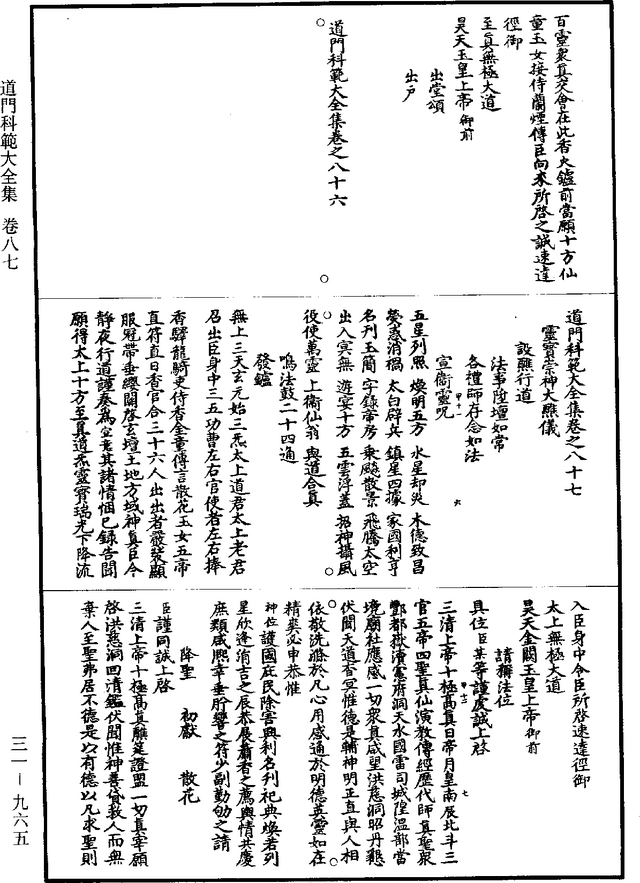 百靈衆真交會在此香火鑪前當願十方仙
童玉女接侍蘭煙傳臣向來所啓之誠速達
徑御
至真無極大道
昊天玉皇上帝御前
出堂頌
出戶
道門科範大全集卷之八十六
道門科範大全集卷之八十七
靈寳崇神大醮儀
設醮行道
法事陞壇如常
各禮師存念如法
宣衞靈呪
五星列照 煥明五方 水星却災 木德致昌
熒惑消禍 太白辟兵 鎮星四據 家國利亨
名刊玉簡 字錄帝房 乘飈散景 飛騰太空
出入冥無 遊宴十方 五雲浮蓋 招神攝風
役使萬靈 上衞仙翁 與道合真
鳴法鼓二十四通
發鑪
無上三天玄元始三炁太上道君太上老君
召出臣身中三五功曹左右官使者左右捧
香驛龍騎吏侍香金童傳言散花玉女五帝
直符直日香官合三十六人出出者嚴裝顯
服冠帶垂纓關啓玄壇土地方域神真臣今
靜夜行道謹奏爲宣意其諸情悃已錄告聞
願得太上十方至真道炁靈寳瑞光下降流
入臣身中令臣所啓速達徑御
太上無極大道
昊天金闕玉皇上帝御前
請稱法位
具位臣某等謹虔誠上啓
三清上帝十極高真日帝月皇南辰北斗三
官五帝四聖真仙演教傳經歷代師真聖衆
酆都嶽瀆靈府洞天水國雷司城隍溫部當
境廟社應感一切衆真咸望洪慈洞昭丹懇
伏聞天道杳冥惟德是輔神明正直與人相
依敬洗滌於凡心用感通於明德英靈如在
精爽必申恭惟
神位護國庇民除害興利名列祀典煥若列
星欣逢涓吉之辰恭展蕭耆之薦輿情共慶
庶類咸熙幸垂肸蠁之符少副勤劬之請
降聖 初獻 散花
臣謹同誠上啓
三清上帝十極高真醮筵證盟一切真宰願
啓洪慈洞回清鑑伏聞惟神善貸救人而無
棄人至聖弗居不德是以有德以凡求聖則
道門科範大全集 卷八七
三一－九六五